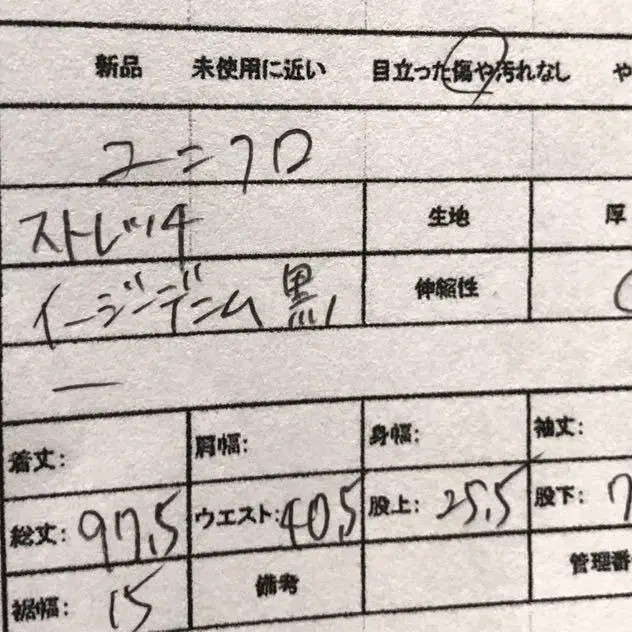 新品 未使用に近い 目立った傷や汚れなし や
ユニクロ
ストレッチ 生地 厚
イージーデニム 黒 伸縮性
ー
着丈: 肩幅: 身幅: 袖丈:
総丈: 97.5 ウエスト: 40.5 股上: 25.5 股下: 7
裾幅: 15 備考 管理番